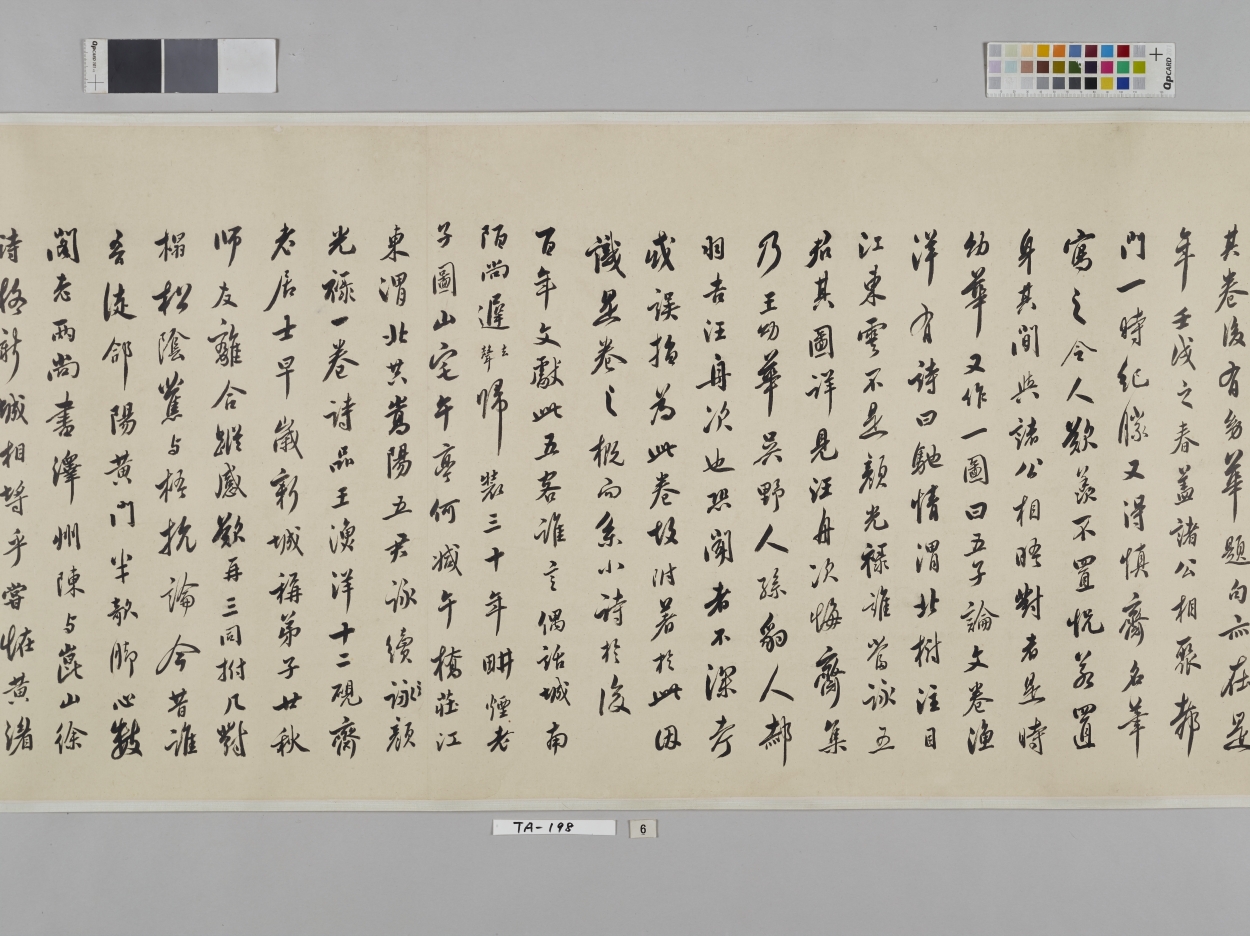 其卷後有幼華題句亦在是
年壬戌之春蓋諸公相聚都
門一時紀勝又得慎齋名筆
寫之令人歎羨不置怳若置
身其間與諸公相晤對者是時
幼華又作一圖曰五子論文卷漁
洋有詩曰馳情渭北樹注目
江東雲不是顏光祿誰當詠五
君其圖詳見汪舟次悔齋集
乃王幼華吳野人孫豹人郝
羽吉汪舟次也恐閱者不深考
或誤指為此卷故附著於此因
識是卷之概而系小詩於後
百年文獻此五客誰言偶話城南
陌尚遲去聲歸裝三十年畊煙老
子圖山宅午亭何減午橋莊江
東渭北共嵩陽五君詠續詠顏
光祿一卷詩品王漁洋十二硯齋
老居士早歲新城稱弟子廿秋
師友離合蹤感歎再三同拊几對
榻松陰蕉與梧抗論今昔誰
吾徒郃陽黃門半欹腳心數
閣老兩尚書澤州陳與崑山徐
詩格新城相埒乎嘗怪黃渚